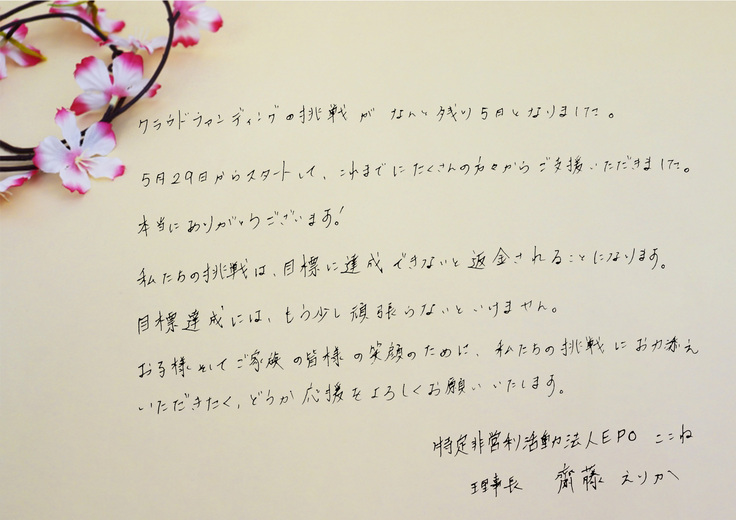 クラウドファンディングの挑戦が なんと残り5日となりました。
5月29日からスタートして、これまでにたくさんの方々からご支援いただきました。
本当にありがとうございます！
私たちの挑戦は、目標に達成できないと返金されることになります。
目標達成には、もう少し頑張らないといけません。
お子様そしてご家族の皆様の笑顔のために、私たちの挑戦にお力添え
いただきたく、どうか応援をよろしくお願いいたします。
特定非営利活動法人EPO ここね
理事長 齋藤 えりか